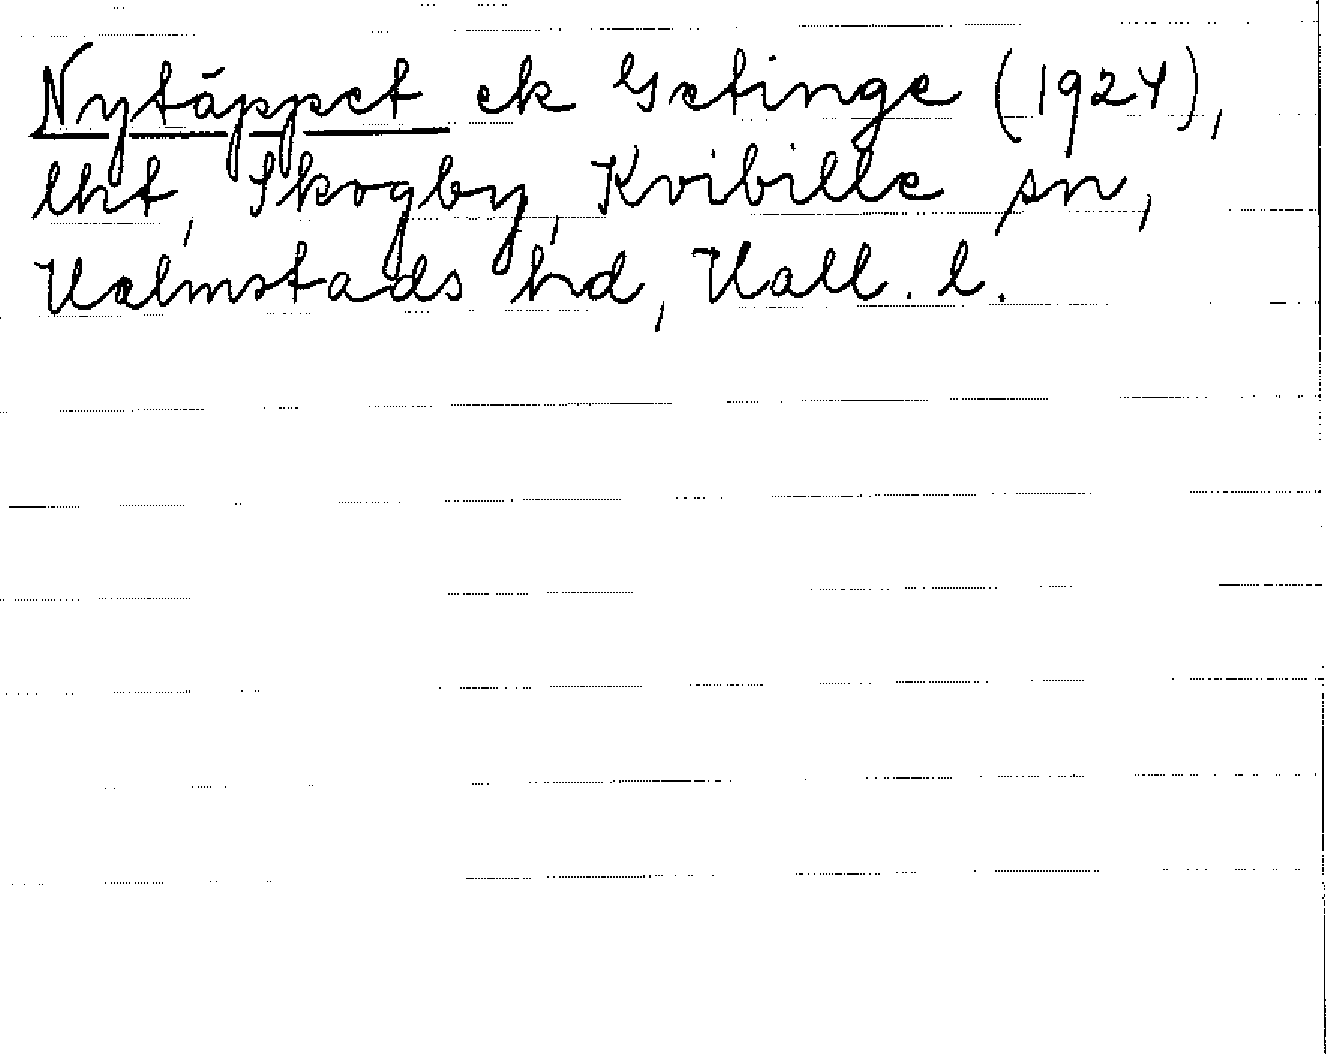 Nytäppet ek Getinge (1924),
lht, Skogby, Kvibille sn,
Halmstads hd, Hall. l.